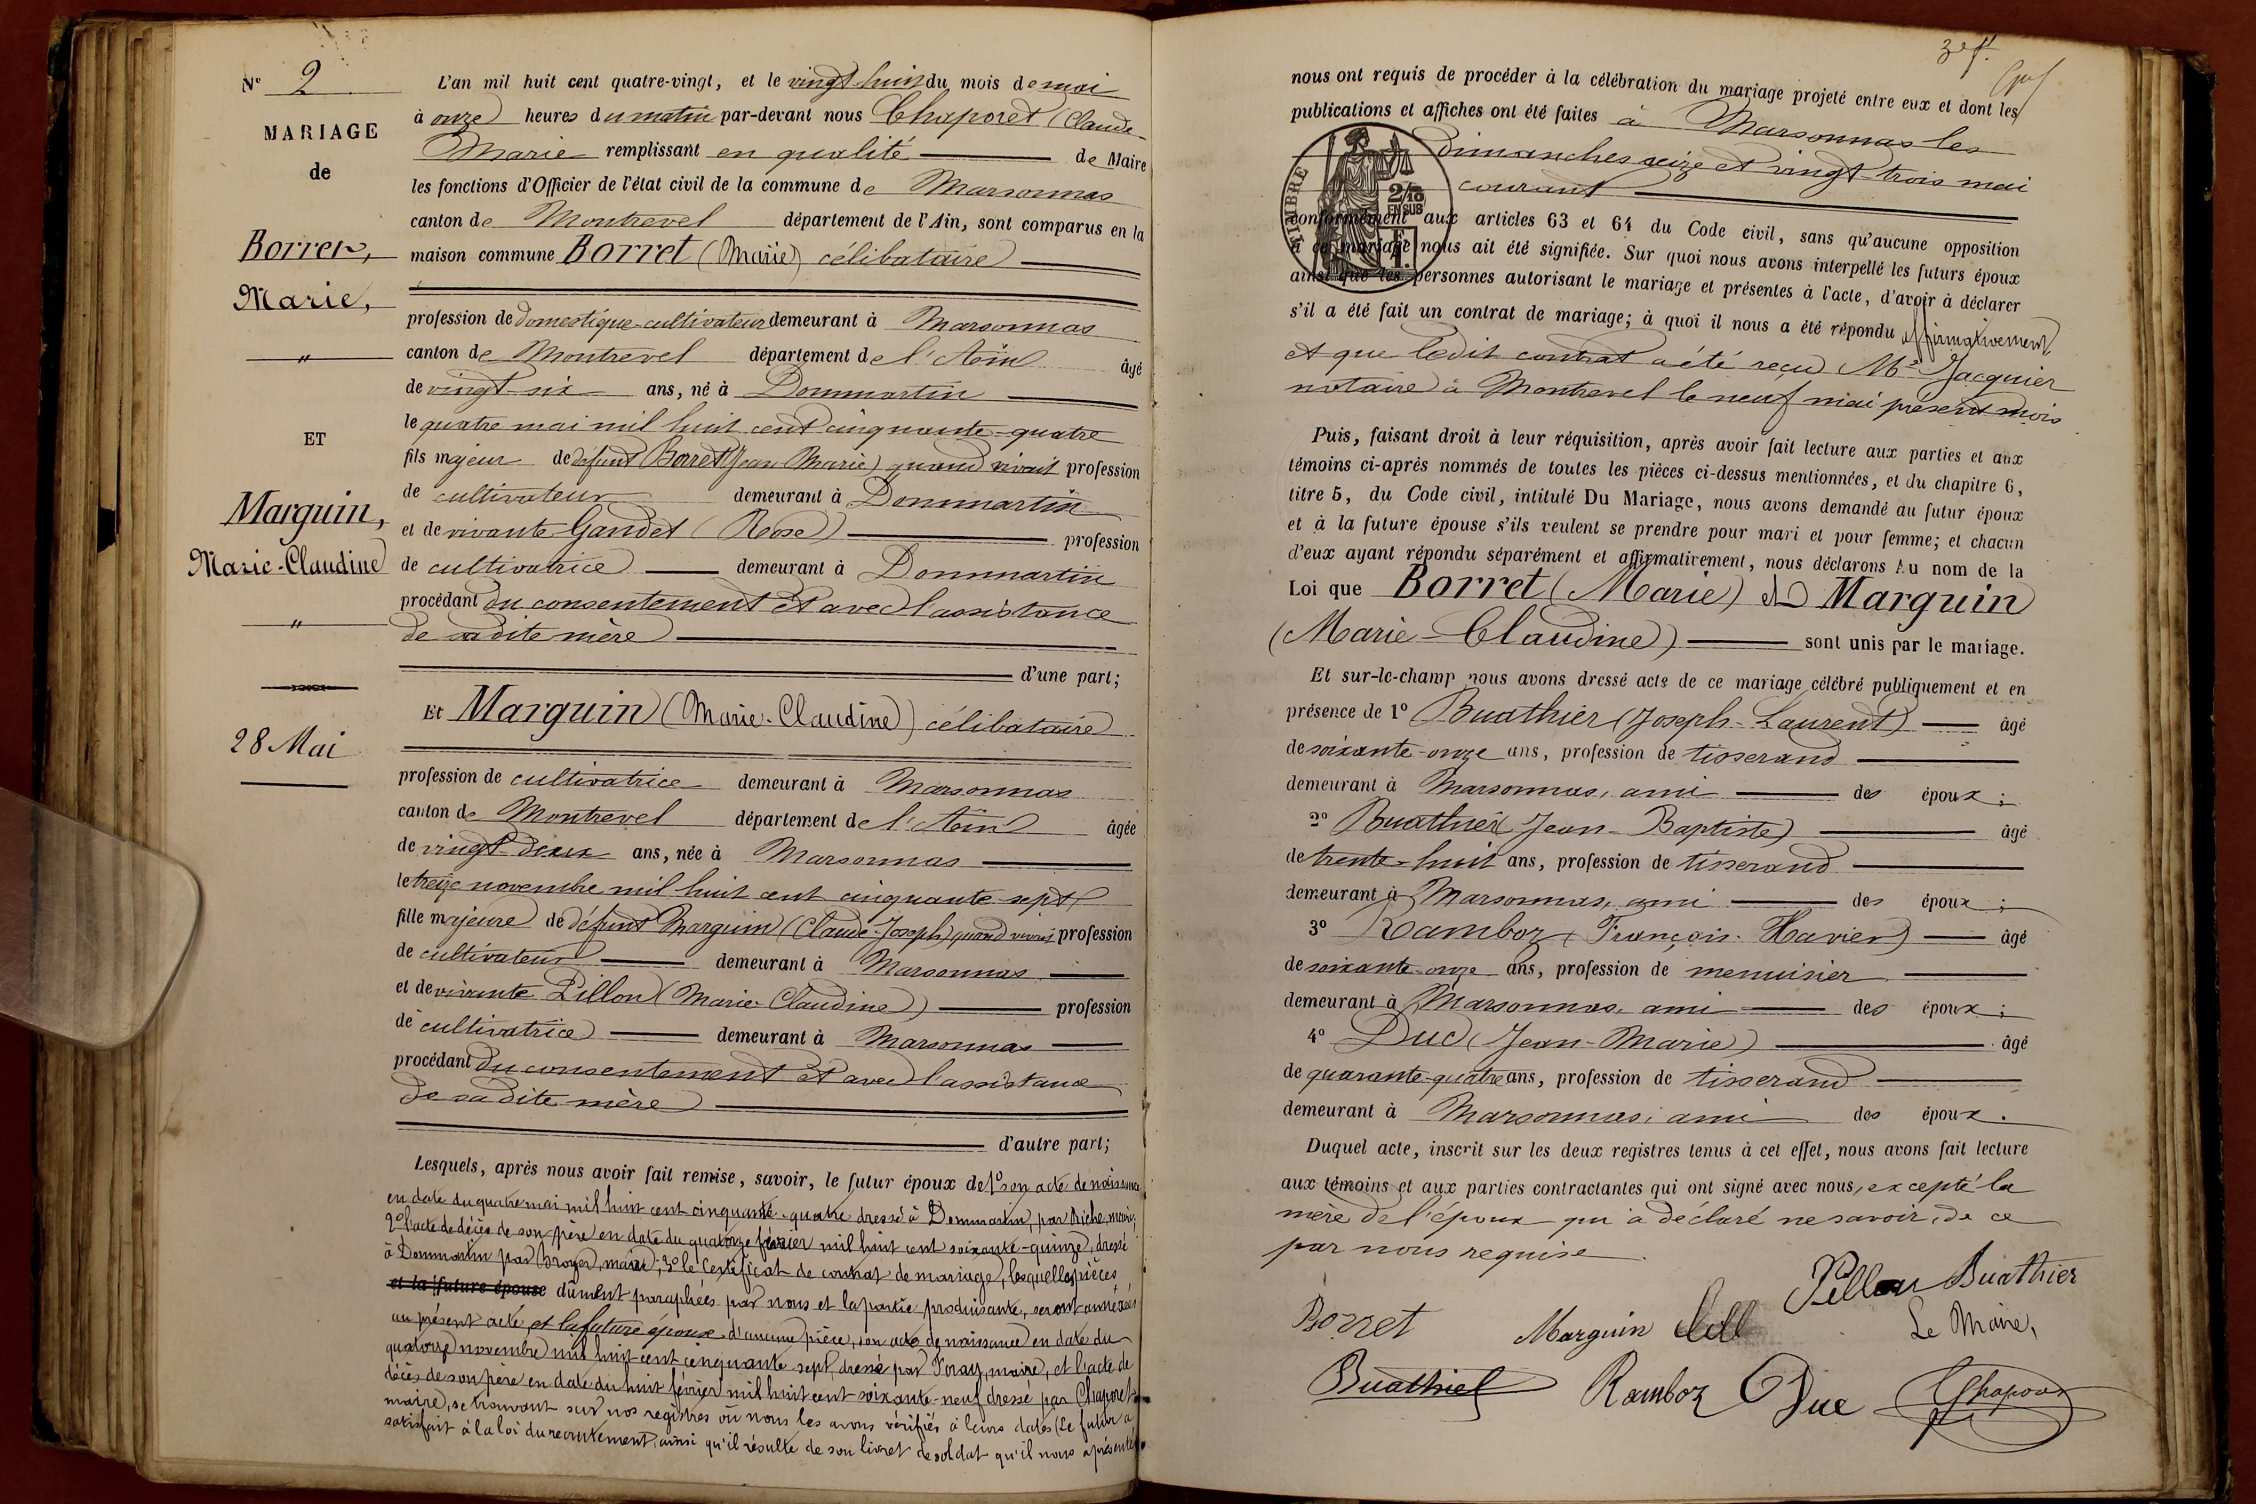 N° 2
MARIAGE
de
Borret,
Marie,
"
ET
Marguin,
Marie-Claudine
"
28 Mai
L'an mil huit cent quatre-vingt, et le vingt huit du mois de mai
à onze heures du matin par-devant nous Chaporet (Claude
Marie remplissant en qualité de Maire
les fonctions d'Officier de l'état civil de la commune de Marsonnas
canton de Montrevel département de l'Ain, sont comparus en la
maison commune Borret (Marie) célibataire
profession de domestique-cultivateur demeurant à Marsonnas
canton de Montrevel département de l'Ain âgé
de vingt-six ans, né à Dommartin
le quatre mai mil huit cent cinquante-quatre
fils majeur de défunt Borret (Jean Marie) quand vivait profession
de cultivateur demeurant à Dommartin
et de vivante Gandet (Rose) profession
de cultivatrice demeurant à Dommartin
procédant du consentement et avec l'assistance
de sa dite mère
d'une part;
Et Marguin (Marie-Claudine) célibataire
profession de cultivatrice demeurant à Marsonnas
canton de Montrevel département de l'Ain âgée
de vingt-deux ans, née à Marsonnas
le treize novembre mil huit cent cinquante sept
fille majeure de défunt Marguin (Claude-Joseph) quand vivait profession
de cultivateur demeurant à Marsonnas
et de vivante Pillon (Marie-Claudine) profession
de cultivatrice demeurant à Marsonnas
procédant du consentement et avec l'assistance
de sa dite mère
d'autre part;
Lesquels, après nous avoir fait remise, savoir, le futur époux de 1° son acte de naissance
en date du quatre mai mil huit cent cinquante-quatre dressé à Dommartin, par Riche, maire;
2° l'acte de décès de son père en date du quatorze février mil huit cent soixante-quinze, dressé
à Dommartin par Broyer, maire; 3° le certificat de contrat de mariage, lesquelles pièces
et la future épouse dûment paraphées par nous et la partie produisante, seront annexées
au présent acte, et la future épouse d'aucune pièce, son acte de naissance en date du
quatorze novembre mil huit cent cinquante sept, dressé par Foray, maire, et l'acte de
décès de son père en date du huit février mil huit cent soixante-neuf dressé par Chaporet
maire, se trouvant sur nos registres où nous les avons vérifiés à leurs dates (Le futur a
satisfait à la loi du recrutement, ainsi qu'il résulte de son livret de soldat qu'il nous a présenté
3e f.
nous ont requis de procéder à la célébration du mariage projeté entre eux et dont les
publications et affiches ont été faites à Marsonnas les
dimanches seize et vingt-trois mai
courant
TIMBRE
2/10
EN SUS
conformément aux articles 63 et 64 du Code civil, sans qu'aucune opposition
à ce mariage nous ait été signifiée. Sur quoi nous avons interpellé les futurs époux
ainsi que les personnes autorisant le mariage et présentes à l'acte, d'avoir à déclarer
s'il a été fait un contrat de mariage; à quoi il nous a été répondu affirmativement,
et que ledit contrat a été reçu Me Jacquier
notaire à Montrevel le neuf mai présent mois
Puis, faisant droit à leur réquisition, après avoir fait lecture aux parties et aux
témoins ci-après nommés de toutes les pièces ci-dessus mentionnées, et du chapitre 6,
titre 5, du Code civil, intitulé Du Mariage, nous avons demandé au futur époux
et à la future épouse s'ils veulent se prendre pour mari et pour femme; et chacun
d'eux ayant répondu séparément et affirmativement, nous déclarons Au nom de la
Loi que Borret (Marie) et Marguin
(Marie-Claudine) sont unis par le mariage.
Et sur-le-champ nous avons dressé acte de ce mariage célébré publiquement et en
présence de 1° Buathier (Joseph-Laurent) âgé
de soixante-onze ans, profession de tisserand
demeurant à Marsonnas, ami des époux;
2° Buathier (Jean-Baptiste) âgé
de trente-huit ans, profession de tisserand
demeurant à Marsonnas, ami des époux;
3° Ramboz (François-Xavier) âgé
de soixante-onze ans, profession de menuisier
demeurant à Marsonnas, ami des époux;
4° Duc (Jean-Marie) âgé
de quarante-quatre ans, profession de tisserand
demeurant à Marsonnas, ami des époux.
Duquel acte, inscrit sur les deux registres tenus à cet effet, nous avons fait lecture
aux témoins et aux parties contractantes qui ont signé avec nous, excepté la
mère de l'époux qui a déclaré ne savoir, de ce
par nous requise.
Pillon Buathier
Borret Marguin Le Maire,
Buathier Ramboz Duc Chaporet